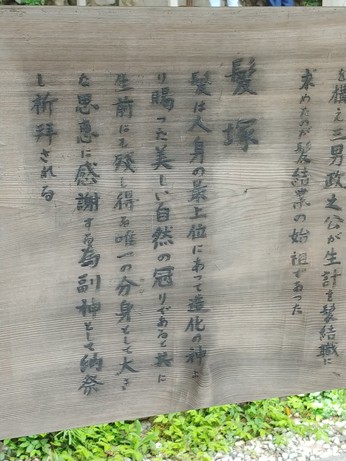 を構え三男政之公が生計を髪結職に
求めたのが髪結業の始祖であった
髪塚
髪は人身の最上位にあって造化の神よ
り賜った美しい自然の冠りであると共に
生前にも残し得る唯一の分身として大き
な恩恵に感謝する為副神として納祭
し祈拜される